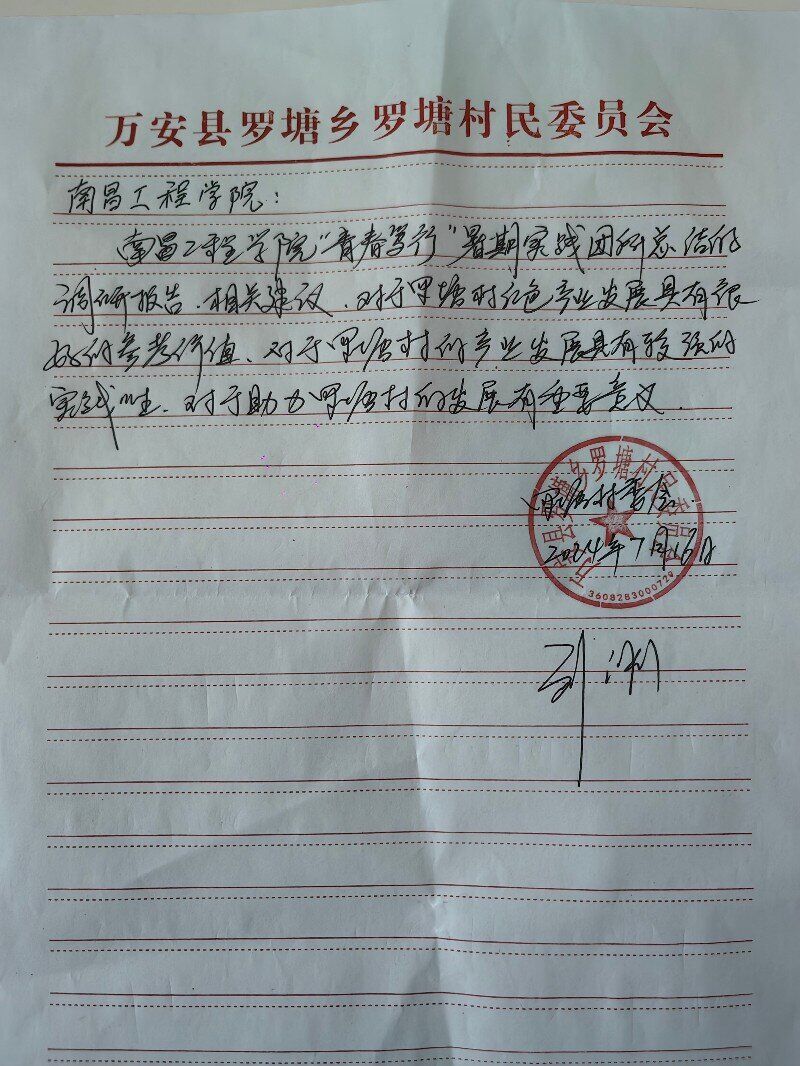 万安县罗塘乡罗塘村民委员会
南昌工程学院:
南昌工程学院“青春笃行”暑期实践团所总结的
调研报告、相关建议、对于罗塘村红色产业发展具有很
好的参考价值、对于罗塘村的产业发展具有较强的
实践性、对于助力罗塘村的发展有重要意义.
万安县罗塘乡罗塘村民委员会
罗塘村委会
2024年7月16日
3608283000729
刘